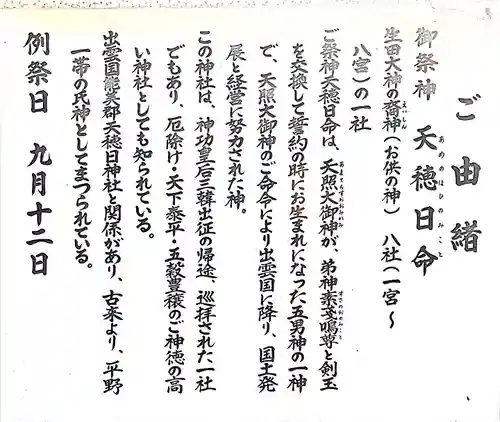 ご由緒
御祭神　天穂日命
あめのほひのみこと
生田大神の裔神（お供の神）　八社（一宮～
えいしん
八宮）の一社
ご祭神天穂日命は、天照大御神が、弟神素戔嗚尊と剣玉
あまてらすおおみかみ
すさのおのみこと
を交換して誓約の時にお生まれになった五男神の一神
で、天照大御神のご命令により出雲国に降り、国土発
展と経営に努力された神。
この神社は、神功皇后三韓出征の帰途、巡拝された一社
でもあり、厄除け・天下泰平・五穀豊穣のご神徳の高
い神社としても知られている。
出雲国能美郡天穂日神社と関係があり、古来より、平野
一帯の氏神としてまつられている。
例祭日　九月十二日